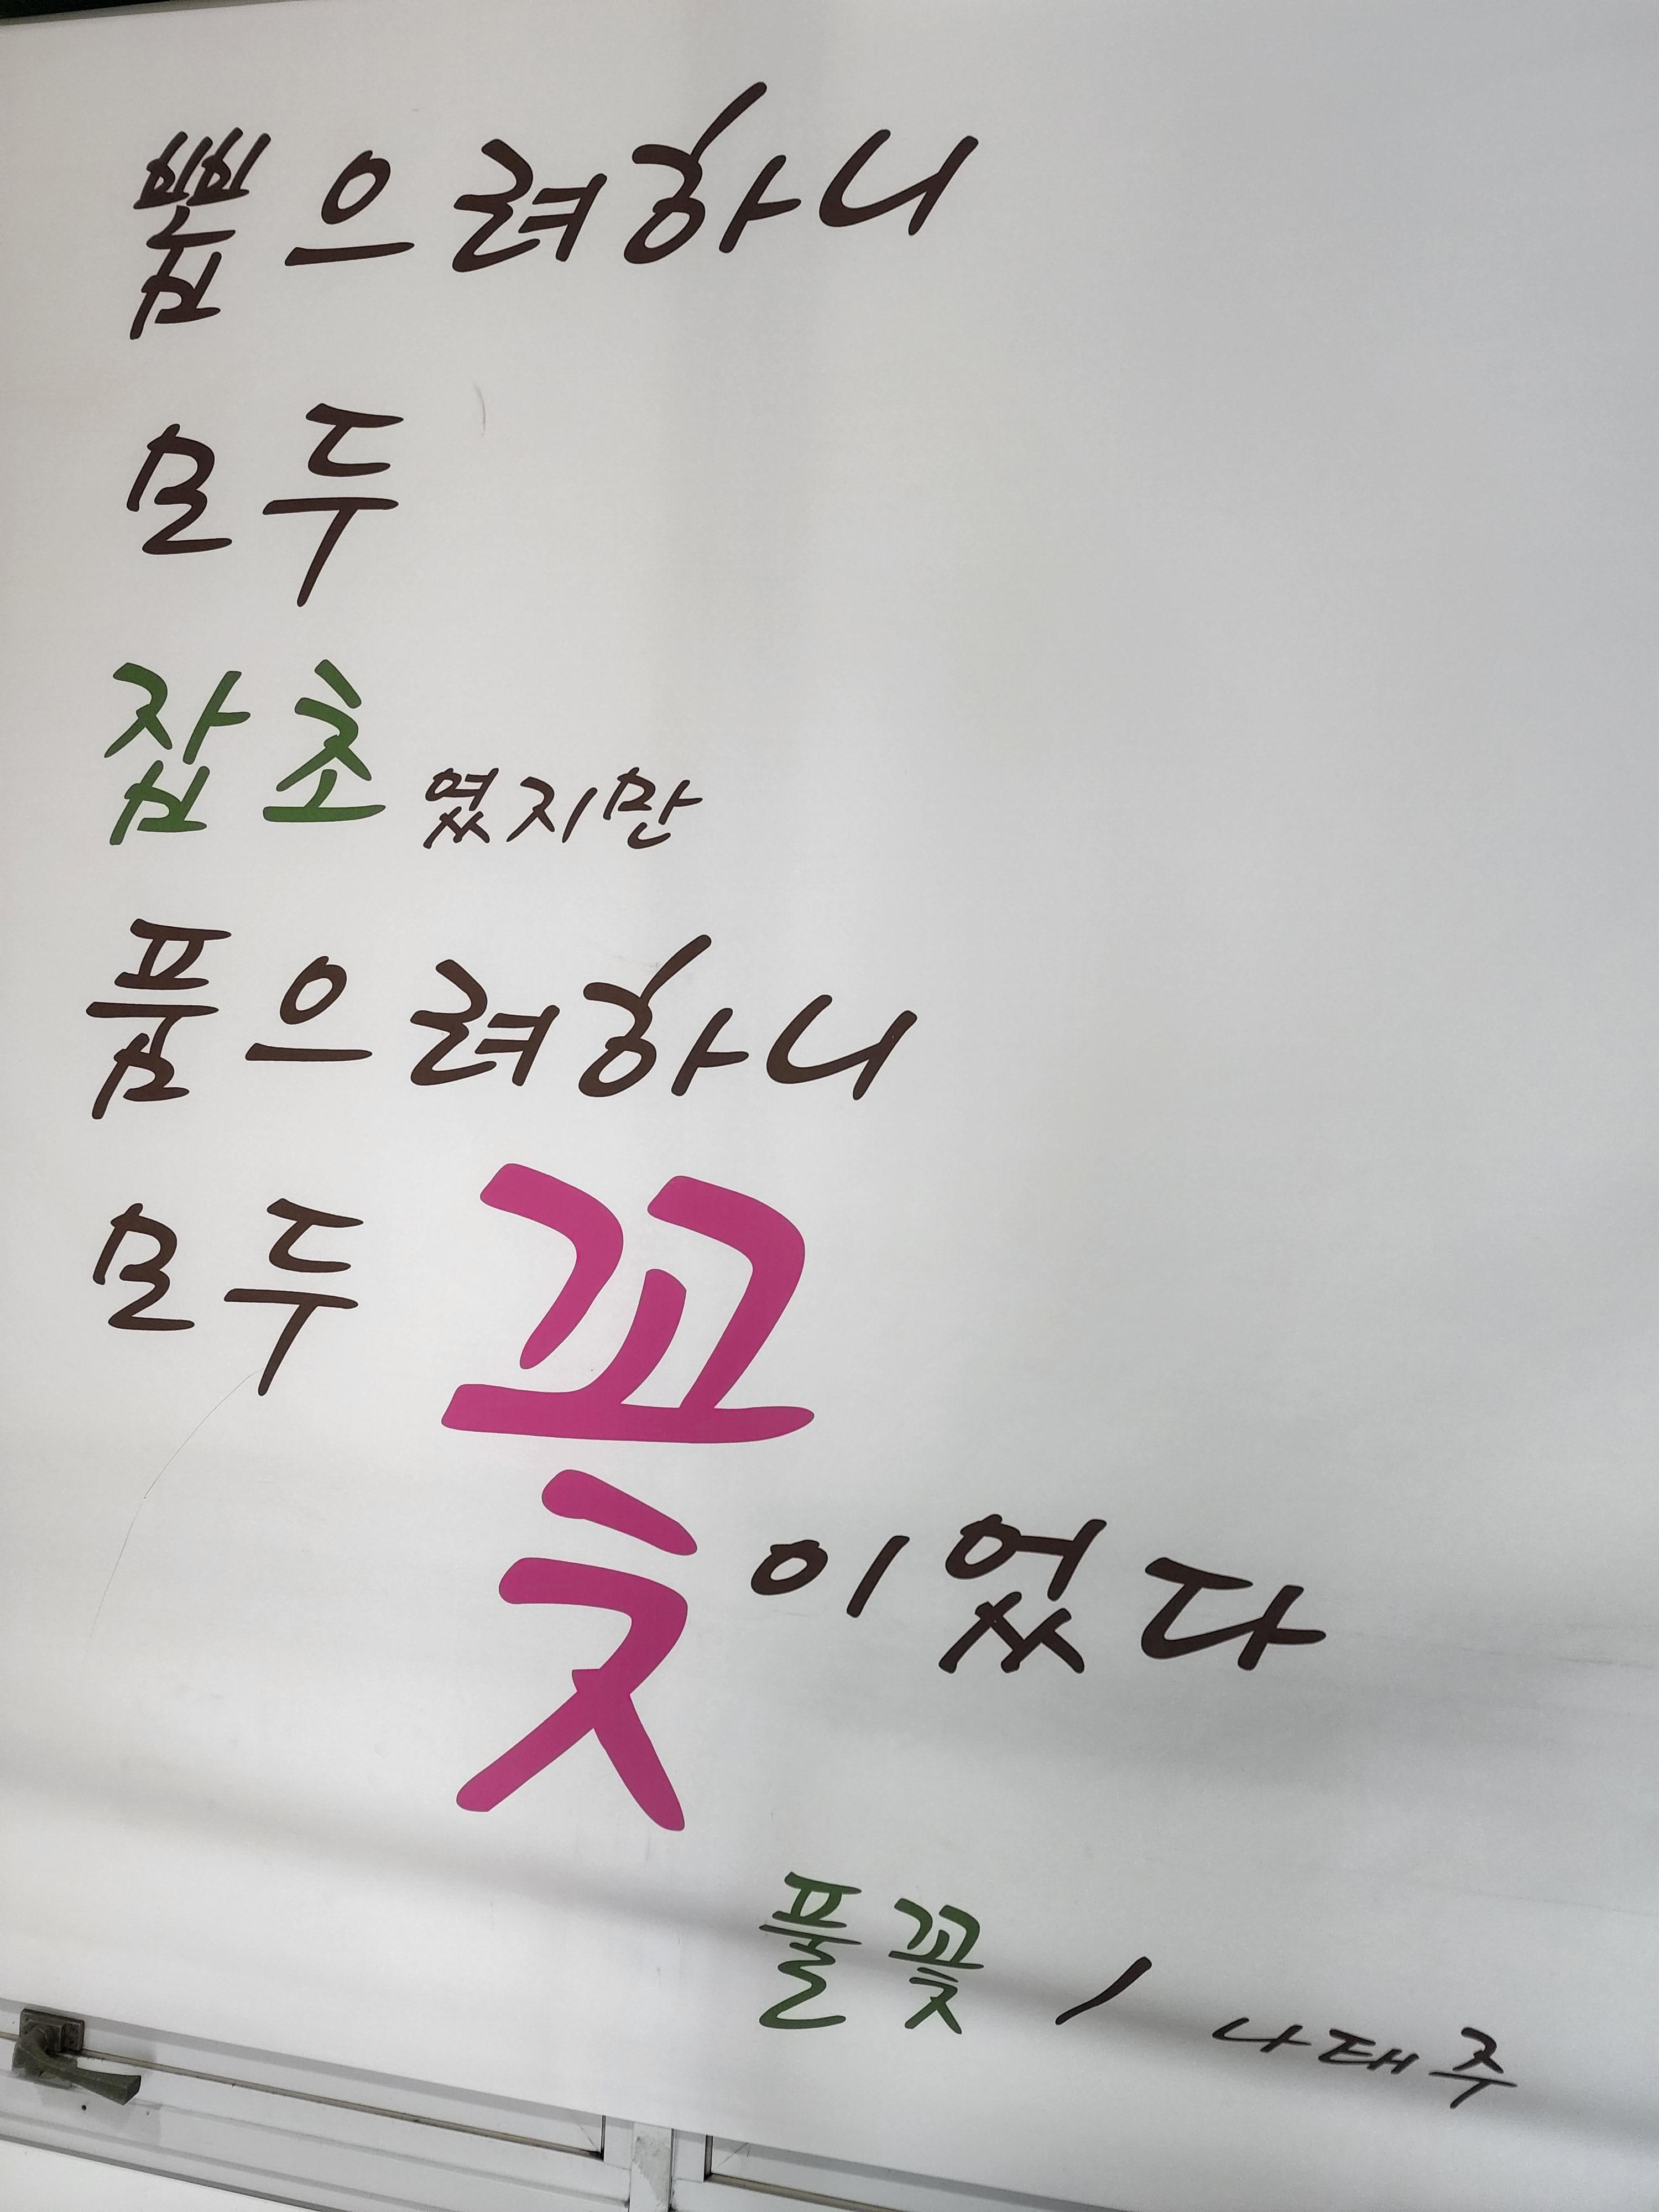 뽑으려하니
모두
잡초였지만
품으려하니
모두 꽃이었다
풀꽃 / 나태주